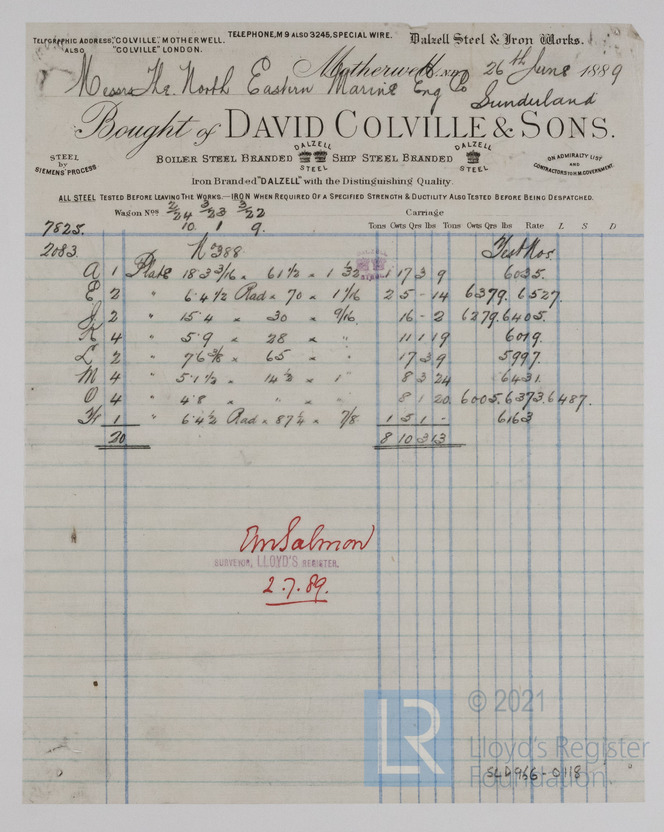 TELEGRAPHIC ADDRESS, "COLVILLE", MOTHERWELL.
ALSO "COLVILLE" LONDON.
TELEPHONE, Nº 9 ALSO 3245, SPECIAL WIRE.
Dalzell Steel & Iron Works.
Motherwell, N.B. 26th June 1889
Messrs The North Eastern Marine Eng Co
Sunderland
Bought of DAVID COLVILLE & SONS.
STEEL by SIEMENS' PROCESS
BOILER STEEL BRANDED DALZELL STEEL SHIP STEEL BRANDED DALZELL STEEL
ON ADMIRALTY LIST AND CONTRACTORS TO H.M. GOVERNMENT.
Iron Branded "DALZELL" with the Distinguishing Quality.
ALL STEEL TESTED BEFORE LEAVING THE WORKS.—IRON WHEN REQUIRED OF A SPECIFIED STRENGTH & DUCTILITY ALSO TESTED BEFORE BEING DESPATCHED.
Wagon Nos 2/24 3/23 3/22 Carriage
7825. 10. 1 9. Tons Cwts Qrs lbs Tons Cwts Qrs lbs Rate L S D
2083. No 388 Test Nos.
A 1 Plate 18.3 3/16 × 61 1/2 × 1 1/32 1 17 3 9 6035.
E 2 " 6.4 1/2 Rad × 70 × 1 1/16 2 5 - 14 6379. 6527.
J 2 " 15.4 × 30 × 9/16 16 - 2 6279. 6405.
K 4 " 5.9 × 28 × " 11 1 19 6019.
L 2 " 7 6 3/8 × 65 × " 17 3 9 5997.
M 4 " 5.1 1/2 × 14 1/2 × 1" 8 3 24 6431.
O 4 " 4.8 × " × " 8 1 20 6005. 6373. 6487.
1 " 6.4 1/2 Rad × 87 1/4 × 7/8 1 5 1 - 6163
20 8 10 3 13
DALZELL STEEL
Salmon
SURVEYOR, LLOYD'S REGISTER.
2.7.89.
LR
© 2021
Lloyd's Register
Foundation
SLD966-0118